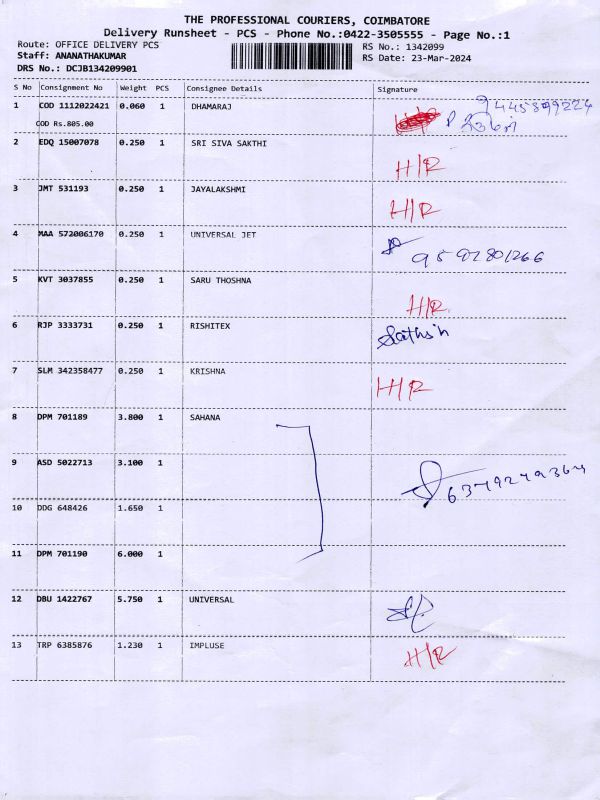 THE PROFESSIONAL COURIERS, COIMBATORE
Delivery Runsheet - PCS - Phone No.:0422-3505555 - Page No.:1
Route: OFFICE DELIVERY PCS RS No.: 1342099
Staff: ANANATHAKUMAR RS Date: 23-Mar-2024
DRS No.: DCJB134209901
S No Consignment No Weight PCS Consignee Details Signature
1 COD 1112022421 0.060 1 DHAMARAJ
COD Rs.805.00
2 EDQ 15007078 0.250 1 SRI SIVA SAKTHI H/R
3 JMT 531193 0.250 1 JAYALAKSHMI H/R
4 MAA 572006170 0.250 1 UNIVERSAL JET
5 KVT 3037855 0.250 1 SARU THOSHNA H/R
6 RJP 3333731 0.250 1 RISHITEX
7 SLM 342358477 0.250 1 KRISHNA H/R
8 DPM 701189 3.800 1 SAHANA
9 ASD 5022713 3.100 1
10 DDG 648426 1.650 1
11 DPM 701190 6.000 1
12 DBU 1422767 5.750 1 UNIVERSAL
13 TRP 6385876 1.230 1 IMPLUSE H/R